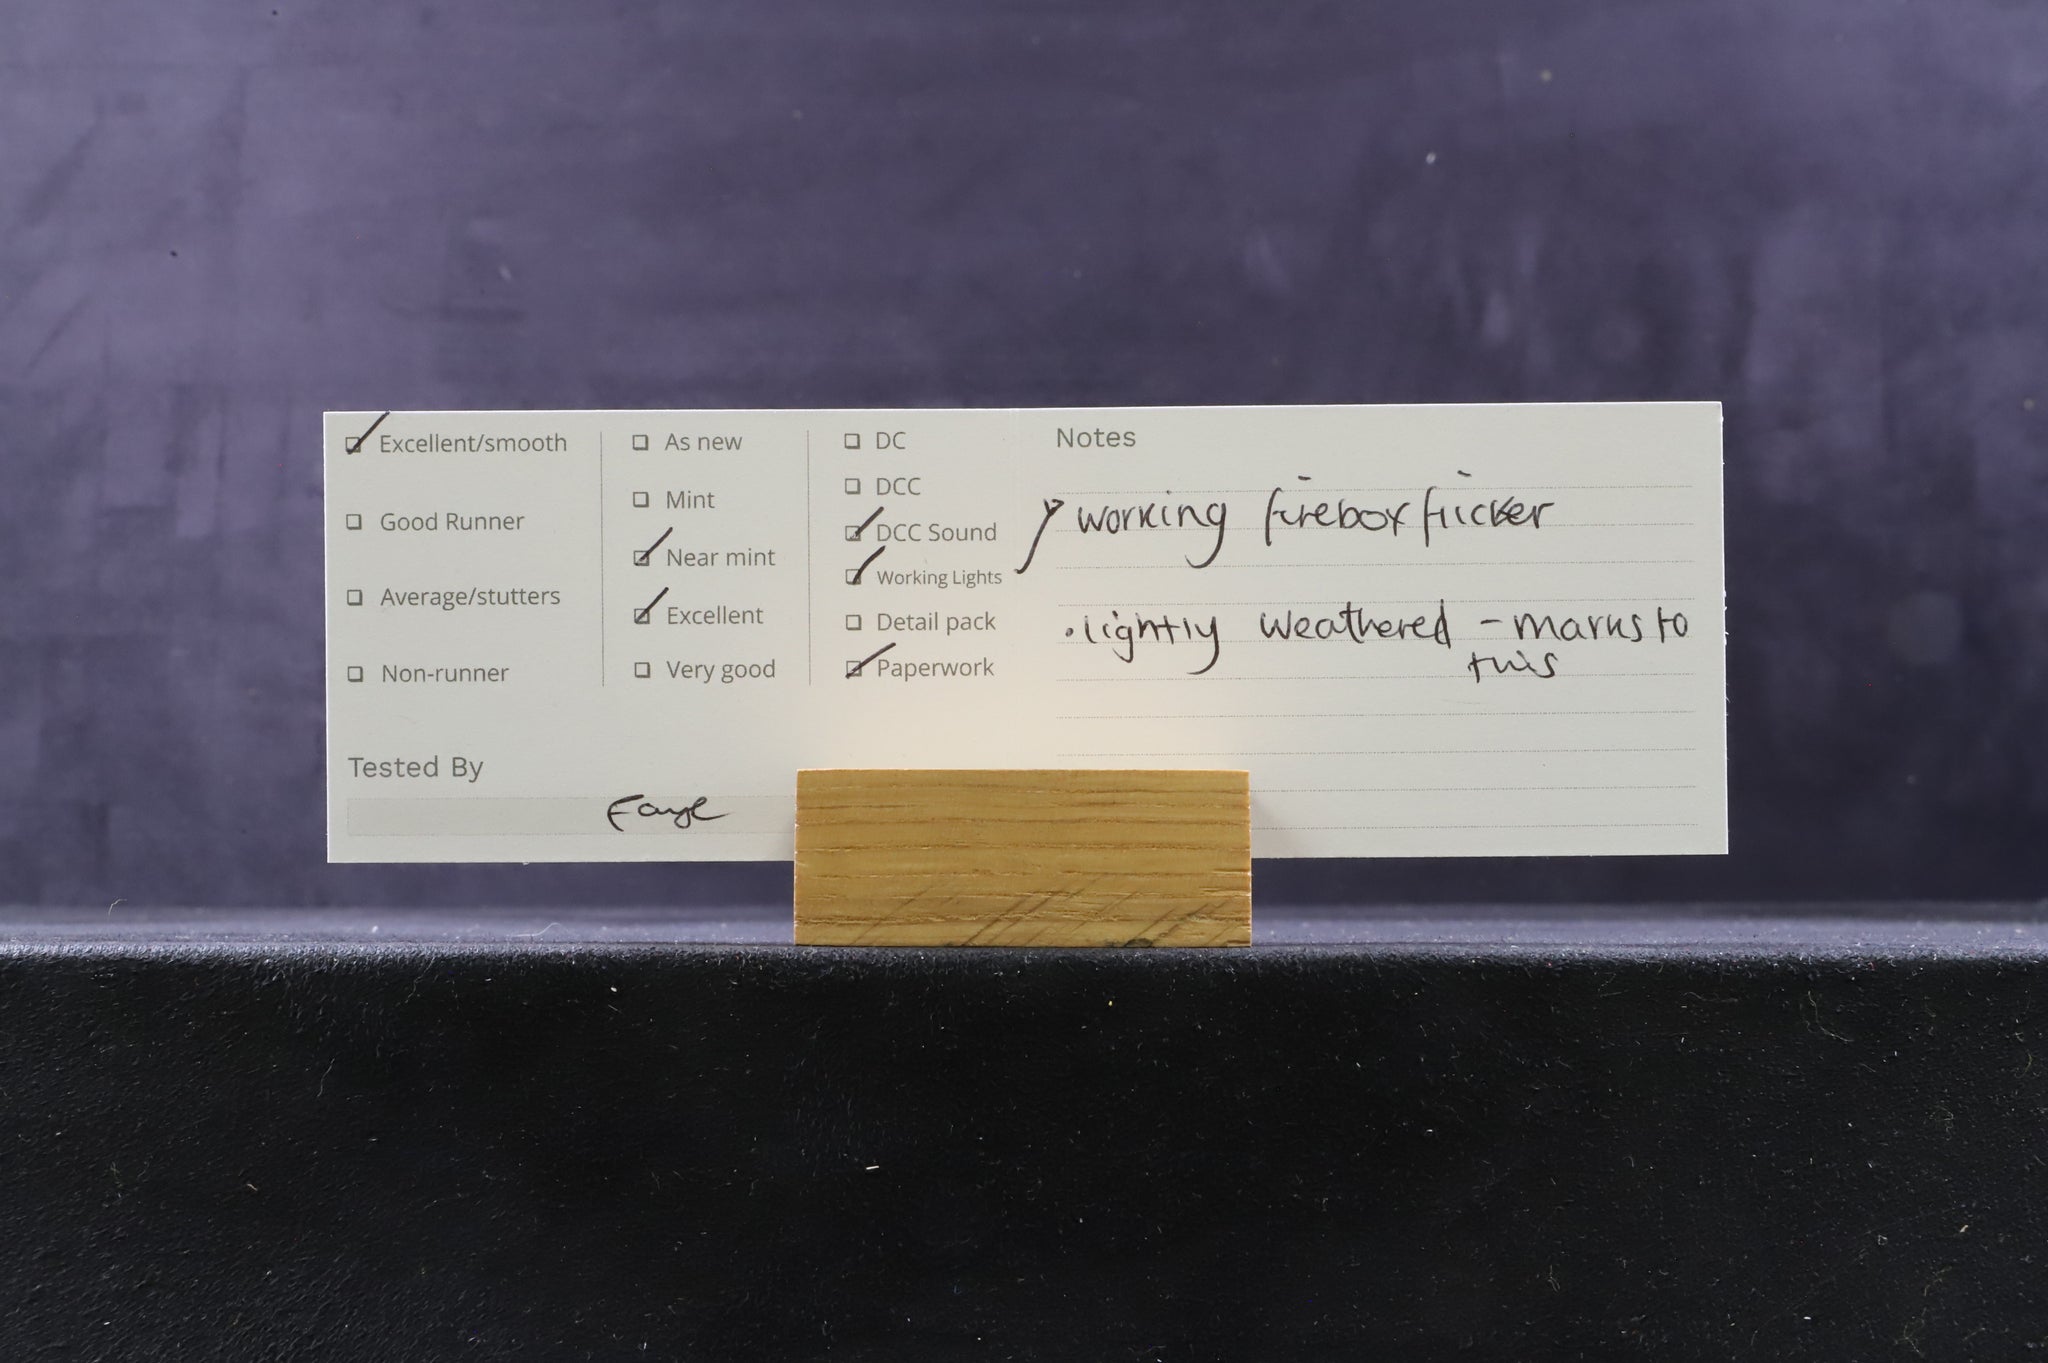 Excellent/smooth
Good Runner
Average/stutters
Non-runner
As new
Mint
Near mint
Excellent
Very good
DC
DCC
DCC Sound
Working Lights
Detail pack
Paperwork
Notes
working firebox flicker
• lightly weathered - marks to
this
Tested By
Faye